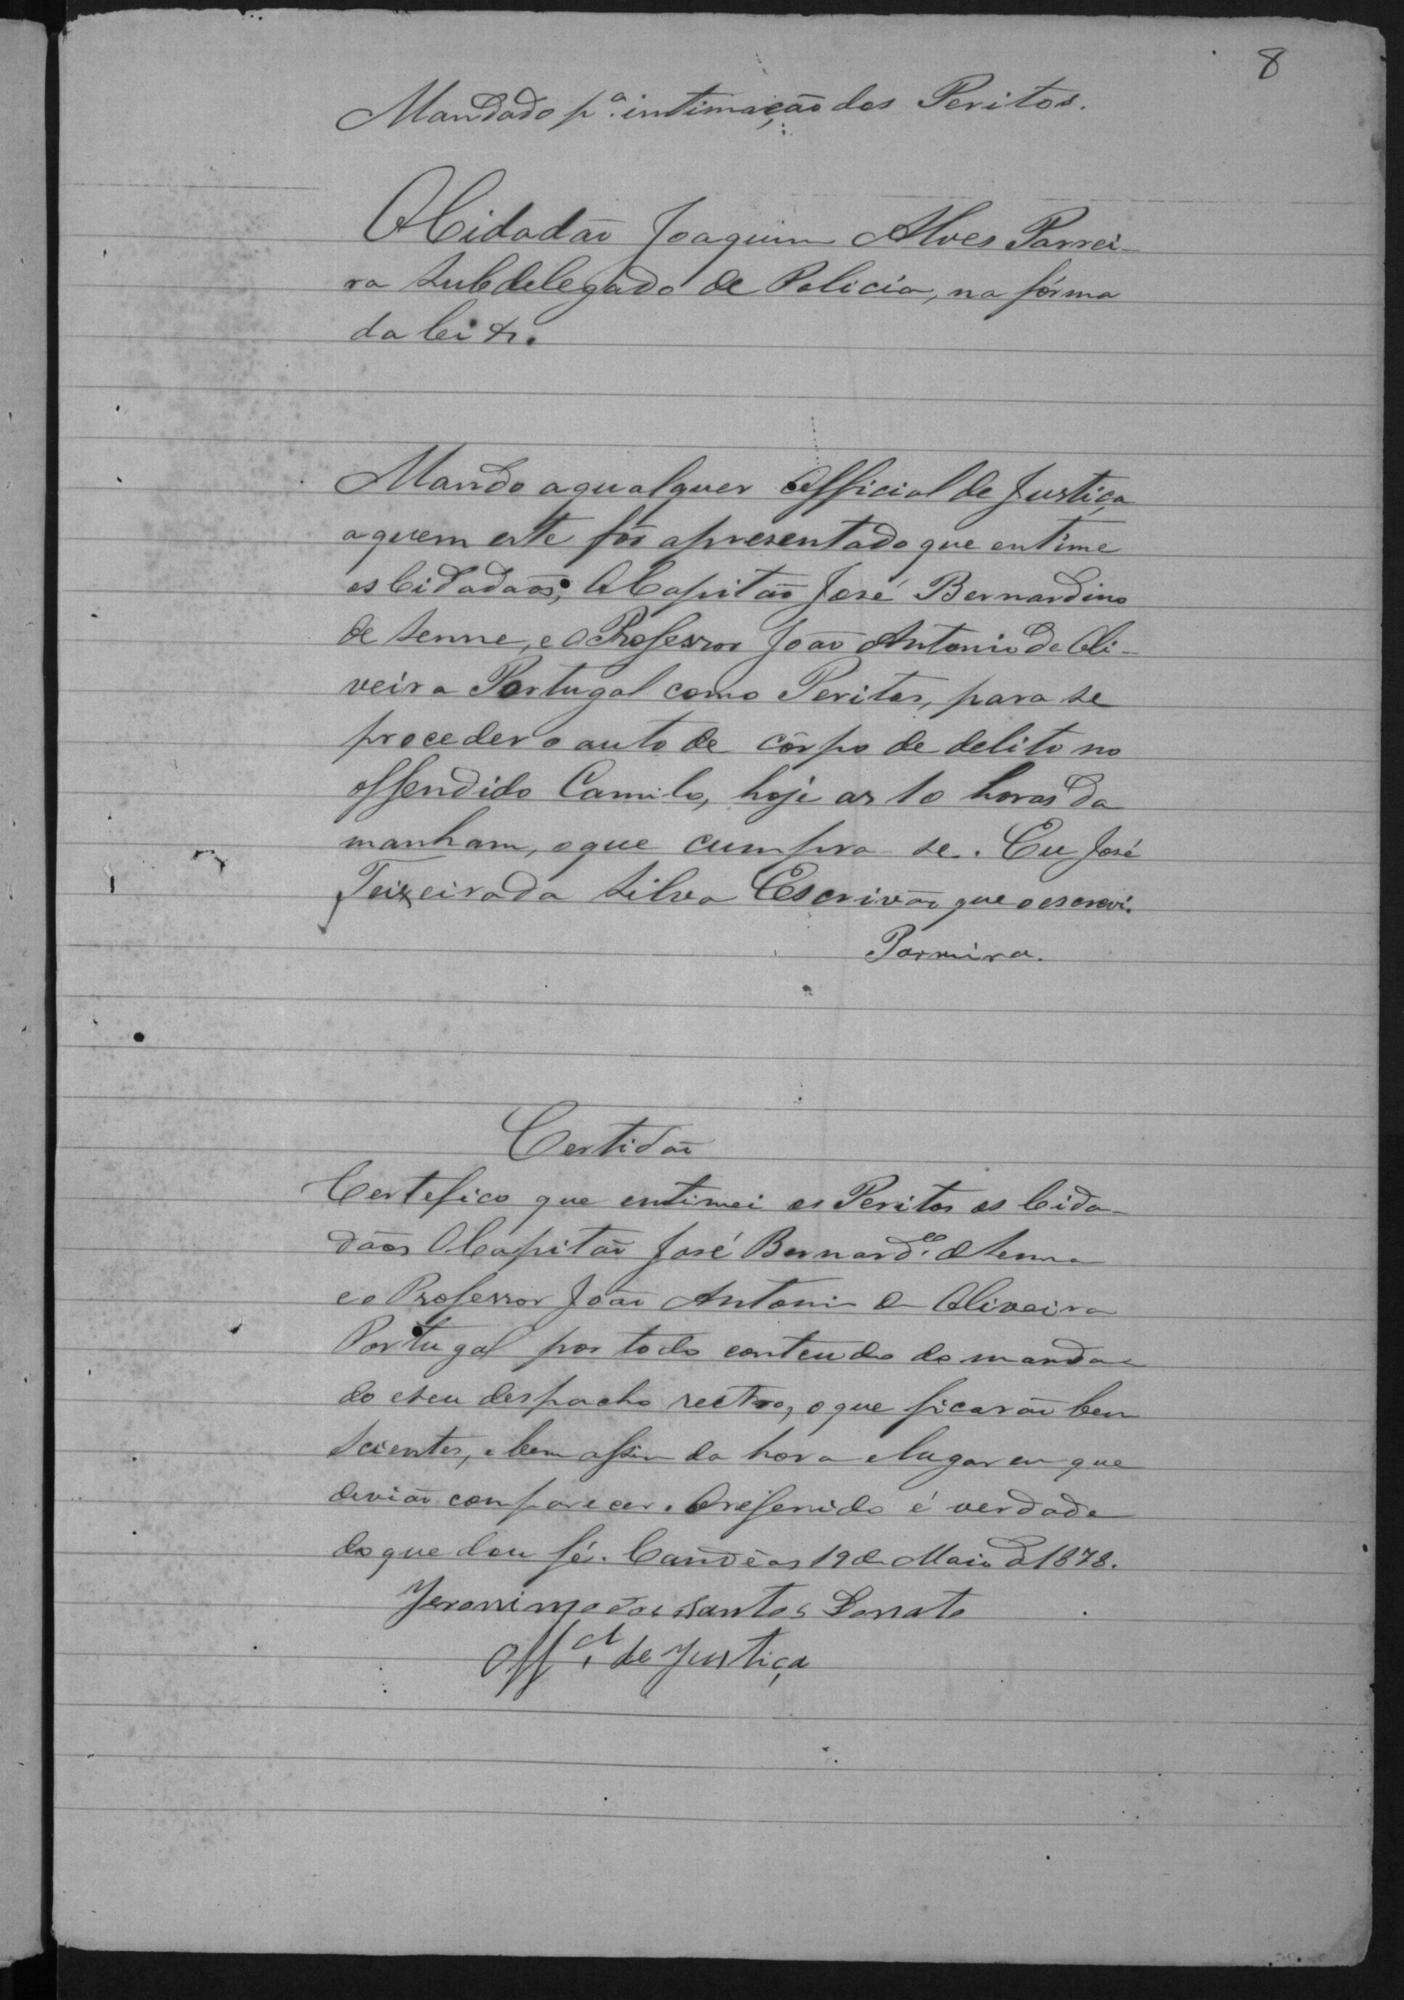 8
Mandado pª. intimação dos Peritos.
O Cidadão Joaquim Alves Parrei-
ra Subdelegado de Policia, na fórma
da lei &.
Mando a qualquer Official de Justiça
a quem este fôr apresentado que entime
os Cidadaõs; O Capitão José Bernardino
de Senne, e O Professor João Antonio de Oli-
veira Portugal como Peritos, para se
proceder o auto de côrpo de delito no
offendido Camilo, hoje as 10 horas da
manham, o que cumpra se. Eu José
Teixeira da Silva Escrivão que o escrevi.
Parreira.
Certidão
Certefico que entimei os Peritos os Cida-
dãos O Capitão José Bernard.co de Senna
e o Professor João Antonio de Oliveira
Portugal por todo conteudo do manda-
do e seu despacho rectro, o que ficarão bem
scientes, e bem assim da hora e lugar em que
devião comparecer. O referido é verdade
do que dou fé. Candêas 19 de Maio de 1878.
Jeronimo dos Santos Donato
Off.cl de Justiça